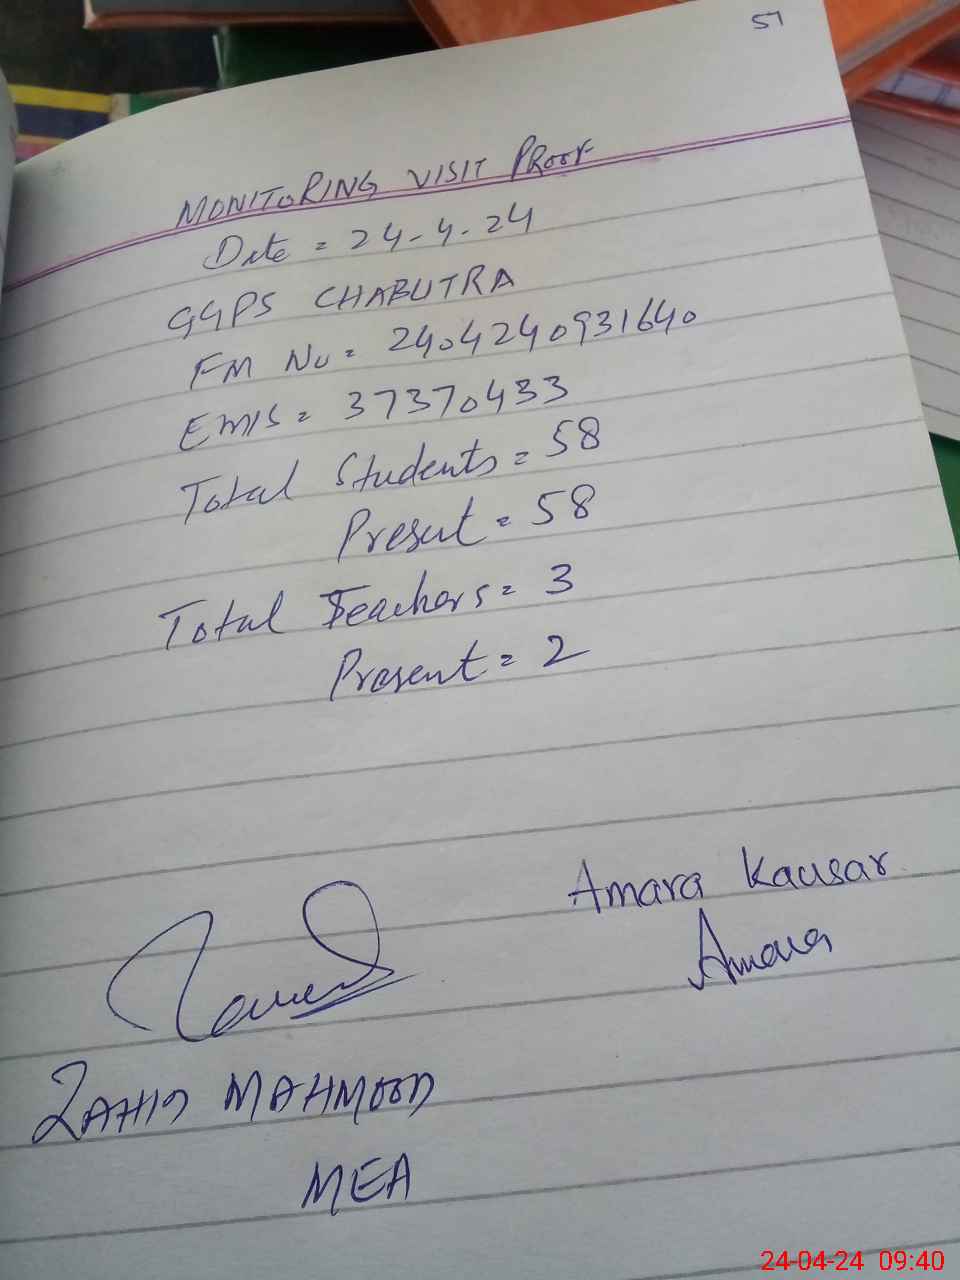 57
MONITORING VISIT PROOF
Date = 24-4-24
GGPS CHABUTRA
FM No = 2404240931640
EMIS = 37370433
Total Students = 58
Present = 58
Total Teachers = 3
Present = 2
Amara Kausar
Amara
ZAHID MAHMOOD
MEA
24-04-24 09:40